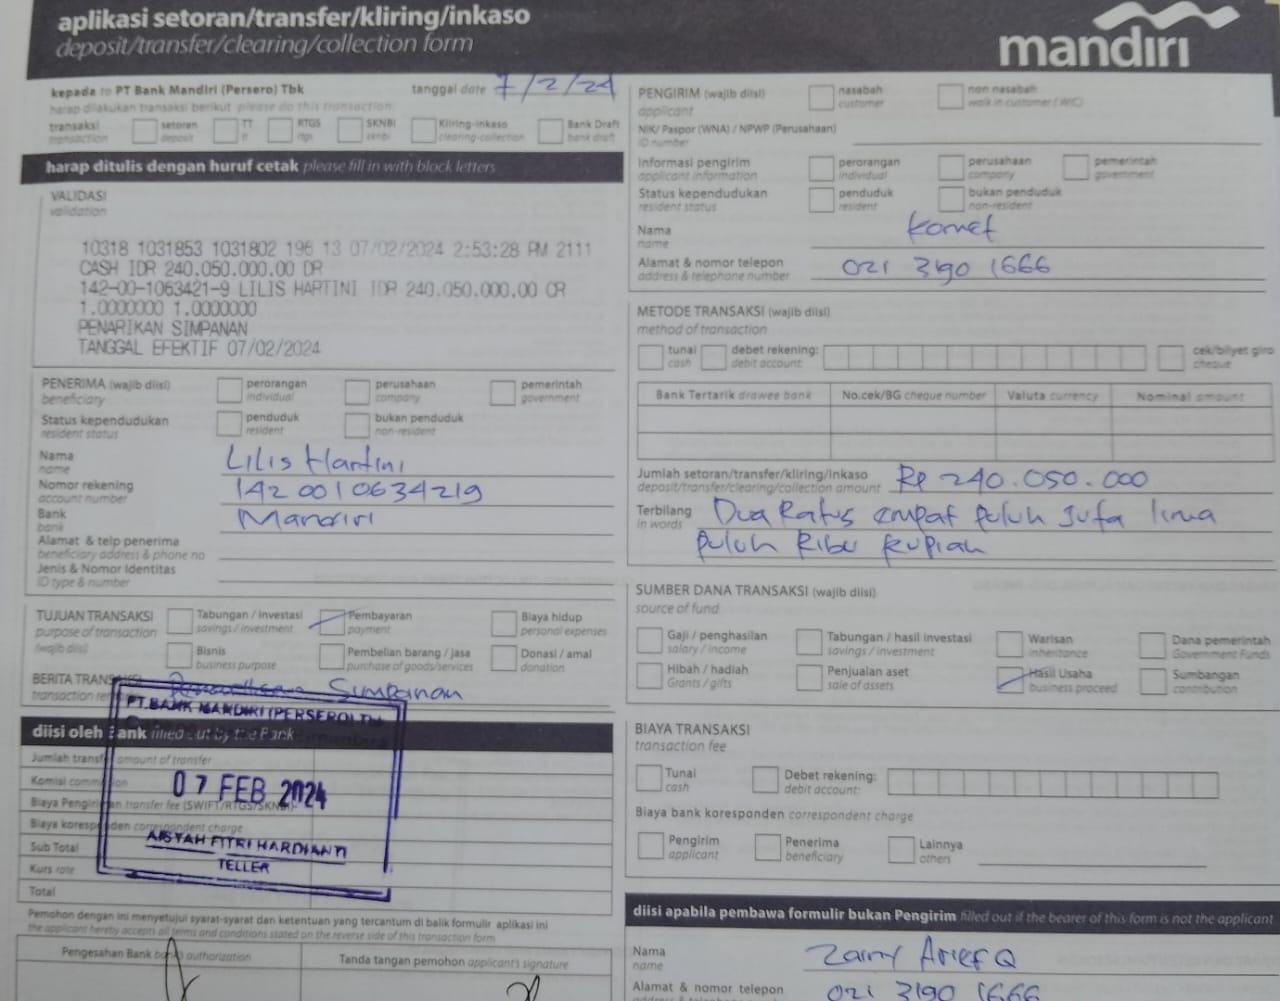 aplikasi setoran/transfer/kliring/inkaso
deposit/transfer/clearing/collection form
mandiri
kepada to PT Bank Mandiri (Persero) Tbk
tanggal date 7/2/24
harap dilakukan transaksi berikut please do this transaction:
transaksi transaction
setoran deposit
TT tt
RTGS rtgs
SKNBI sknbi
Kliring-inkaso clearing-collection
Bank Draft bank draft
harap ditulis dengan huruf cetak please fill in with block letters
VALIDASI
validation
10318 1031853 1031802 196 13 07/02/2024 2:53:28 PM 2111
CASH IDR 240.050.000.00 DR
142-00-1063421-9 LILIS HARTINI IDR 240.050.000.00 CR
1.0000000 1.0000000
PENARIKAN SIMPANAN
TANGGAL EFEKTIF 07/02/2024
PENERIMA (wajib diisi)
beneficiary
perorangan individual
perusahaan company
pemerintah government
Status kependudukan
resident status
penduduk resident
bukan penduduk non-resident
Nama Lilis Hartini
name
Nomor rekening 1420010634219
account number
Bank Mandiri
bank
Alamat & telp penerima
beneficiary address & phone no
Jenis & Nomor Identitas
ID type & number
TUJUAN TRANSAKSI
purpose of transaction
(wajib diisi)
Tabungan / investasi savings / investment
Pembayaran payment
Biaya hidup personal expenses
Bisnis business purpose
Pembelian barang / jasa purchase of goods/services
Donasi / amal donation
BERITA TRANSAKSI Simpanan
PT.BANK MANDIRI (PERSERO) Tbk
diisi oleh Bank filled out by the Bank
Jumlah transfer amount of transfer
Komisi commission
07 FEB 2024
Biaya Pengiriman transfer fee (SWIFT/RTGS/SKNBI)
Biaya koresponden correspondent charge
AISYAH FITRI HARDIANTI
Sub Total
TELLER
Kurs rate
Total
Pemohon dengan ini menyetujui syarat-syarat dan ketentuan yang tercantum di balik formulir aplikasi ini
the applicant hereby accepts all terms and conditions stated on the reverse side of this transaction form
Pengesahan Bank bank's authorization
Tanda tangan pemohon applicant's signature
PENGIRIM (wajib diisi)
applicant
nasabah customer
non nasabah walk in customer (WIC)
NIK/Paspor (WNA) / NPWP (Perusahaan)
ID number
Informasi pengirim
applicant information
perorangan individual
perusahaan company
pemerintah government
Status kependudukan
resident status
penduduk resident
bukan penduduk non-resident
Nama Komet
name
Alamat & nomor telepon 021 3190 1666
address & telephone number
METODE TRANSAKSI (wajib diisi)
method of transaction
tunai cash
debet rekening: debit account:
cek/bilyet giro cheque
Bank Tertarik drawee bank
No.cek/BG cheque number
Valuta currency
Nominal amount
Jumlah setoran/transfer/kliring/inkaso Rp 240.050.000
deposit/transfer/clearing/collection amount
Terbilang Dua Ratus empat puluh Juta lima
in words
puluh Ribu Rupiah
SUMBER DANA TRANSAKSI (wajib diisi)
source of fund
Gaji / penghasilan salary / income
Tabungan / hasil investasi savings / investment
Warisan inheritance
Dana pemerintah Government Funds
Hibah / hadiah Grants / gifts
Penjualan aset sale of assets
Hasil Usaha business proceed
Sumbangan contribution
BIAYA TRANSAKSI
transaction fee
Tunai cash
Debet rekening: debit account:
Biaya bank koresponden correspondent charge
Pengirim applicant
Penerima beneficiary
Lainnya others
diisi apabila pembawa formulir bukan Pengirim filled out if the bearer of this form is not the applicant
Nama Zainy Arief Q
name
Alamat & nomor telepon 021 3190 1666